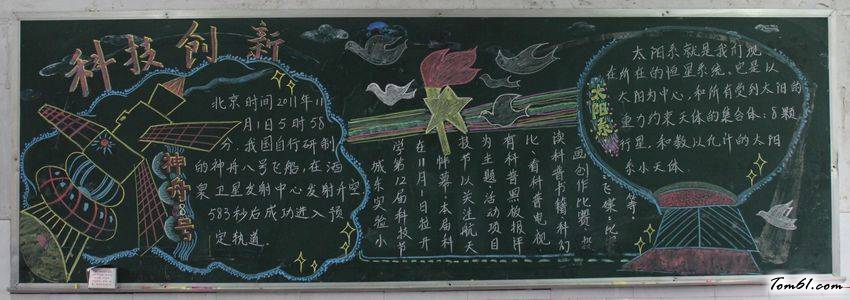 科技创新
北京时间2011年11
月1日5时58
分，我国自行研制
的神舟八号飞船，在酒
泉卫星发射中心发射升空
583秒后成功进入预
定轨道.
神舟8号
城东实验小
学第12届科技节
在11月1日拉开
帏幕.本届科
技节以关注航天
为主题.活动项目
有科普黑板报评
比.看科普电视
读科普书籍科幻
画创作比赛.
飞碟.比
等.
太阳系
太阳系就是我们现
在所在的恒星系统.它是以
太阳为中心，和所有受到太阳的
重力约束天体的集合体:8颗
行星，和数以亿计的太阳
系小天体.
Tom61.com